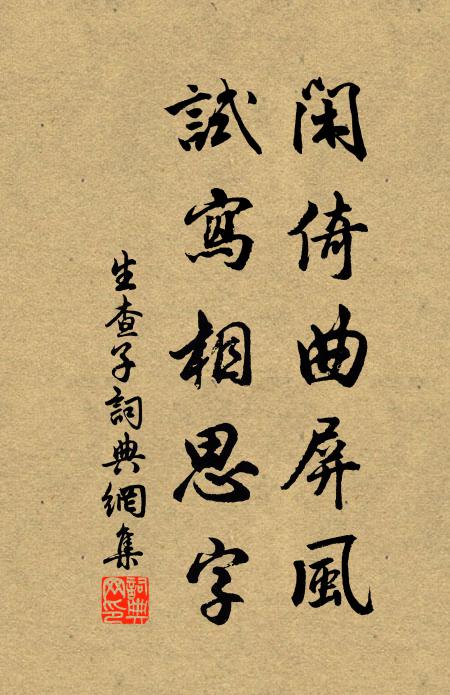 閑倚曲屏風
試寫相思字
生查子詞典網集
詞典網印